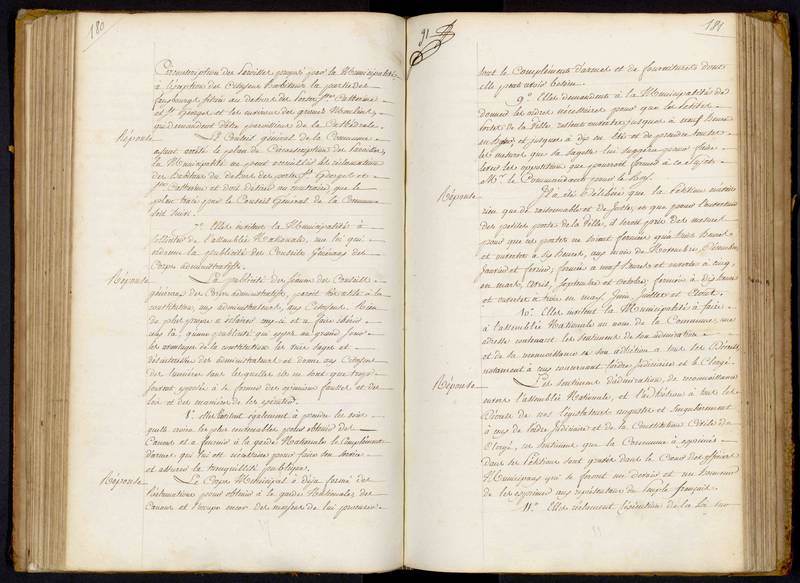 180
Circonscription des Paroisses proposé par la Municipalité,
à l'exception des Citoyens habitans la partie des
faubourgs situés au dehors des portes Ste Catherine
et St Georges et les environs des grands Moulins,
qui demandent d'être paroissiens de la Cathédrale.
Réponse Le Conseil général de la Commune
ayant arrêté le plan de Circonscription des Paroisses,
la Municipalité ne peut accueillir les réclamations
des habitans du dehors des portes St Georges et
Ste Catherine et doit désirer au contraire que le
plan tracé par le Conseil Général de la Commune
soit suivi.
7.º Elles invitent la Municipalité à
solliciter de l'assemblée Nationale, une loi qui
ordonne la publicité des Conseils Généraux des
Corps administratifs.
Réponse La publicité des séances des Conseils
généraux des Corps administratifs, paroit à la
constitution, aux administrateurs, aux Citoyens. Rien
de plus propre à éclairer ceux-ci et à faire
que la publicité qui au grand jour
les avantages de la constitution les vues sages et
désintéressées des administrateurs et donne aux Citoyens
des lumières sur lesquelles ils ne sont que trop
souvent exposés à se former des opinions fausses et des
loix et des manières de les exécuter.
8.º Elles invitent également à prendre les voies
qu'elle croira les plus convenables pour obtenir des
Canons et à fournir à la garde Nationale le Complément
d'armes qui lui est nécessaire pour faire son service
et assurer la tranquillité publique.
Réponse Le Corps Municipal a déja formé des
réclamations pour obtenir à la garde Nationale des
Canons et s'occupe encor des moyens de lui procurer
91
181
tout le Complément d'armes et de fournitures dont
elle peut avoir besoin.
9.º Elles demandent à la Municipalité de
donner les ordres nécessaires pour que les petites
portes de la Ville restent ouvertes jusques à neuf heures
en hyver et jusques à dix en Eté et de prendre toutes
les mesures que sa sagesse lui suggérera pour faire
lever les oppositions que pourroit former à ce sujet
Mr. le Commandant pour le Roy.
Réponse Il a été délibéré que la Pétition n'offre
rien que de raisonnable et de juste, et que pour l'ouverture
des petites portes de la Ville, il seroit pris des mesures
pour que ces portes ne soient fermées qu'à huit heures
et ouvertes à six heures, aux mois de Novembre, Décembre,
Janvier et février; fermées à neuf heures et ouvertes à cinq,
en mars, avril, Septembre et Octobre; fermées à dix heures
et ouvertes à trois en may, Juin, Juillet et Aoust.
10.º Elles invitent la Municipalité à faire
à l'assemblée Nationale au nom de la Commune, une
adresse contenant les sentimens de son admiration
et de sa reconnaissance et son adhésion à tous les Décrets,
notamment à ceux concernant l'ordre Judiciaire et le Clergé.
Réponse Les sentimens d'admiration, de reconnaissance
envers l'assemblée Nationale, et l'adhésion à tous les
Décrets de nos législateurs augustes et singulièrement
à ceux de l'ordre Judiciaire et de la Constitution Civile du
Clergé, ces sentimens que la Commune a exprimés
dans ses Pétitions sont gravés dans le Cœur des officiers
Municipaux qui se feront un devoir et un honneur
de les exprimer aux représentans du peuple français.
11.º Elles réclament l'exécution de la Loi sur